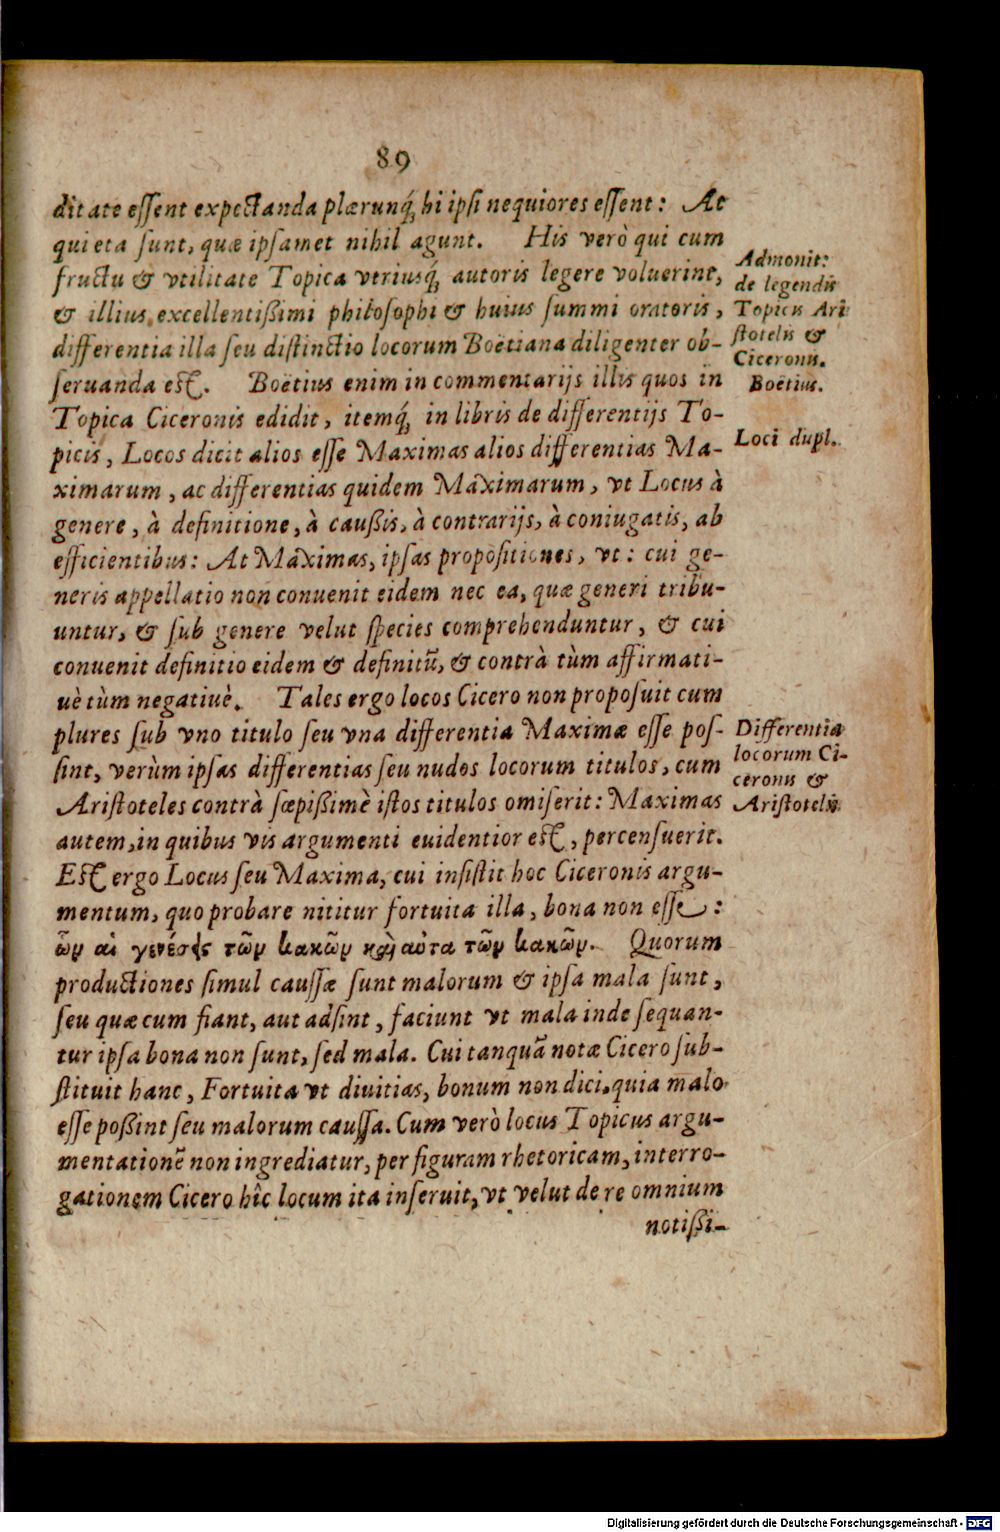 89
ditate essent expectanda plærunq́; hi ipsi nequiores essent: At
qui eta sunt, quæ ipsamet nihil agunt. His verò qui cum
fructu & vtilitate Topica vtriusq́; autoris legere voluerint,
& illius excellentißimi philosophi & huius summi oratoris,
differentia illa seu distinctio locorum Boëtiana diligenter ob-
seruanda est. Boëtius enim in commentarijs illis quos in
Topica Ciceronis edidit, itemq́; in libris de differentijs To-
picis, Locos dicit alios esse Maximas alios differentias Ma-
ximarum, ac differentias quidem Maximarum, vt Locus à
genere, à definitione, à caußis, à contrarijs, à coniugatis, ab
efficientibus: At Maximas, ipsas propositiones, vt: cui ge-
neris appellatio non conuenit eidem nec ea, quæ generi tribu-
untur, & sub genere velut species comprehenduntur, & cui
conuenit definitio eidem & definitū, & contrà tùm affirmati-
uè tùm negatiuè. Tales ergo locos Cicero non proposuit cum
plures sub vno titulo seu vna differentia Maximæ esse pos-
sint, verùm ipsas differentias seu nudos locorum titulos, cum
Aristoteles contrà sæpißimè istos titulos omiserit: Maximas
autem, in quibus vis argumenti euidentior est, percensuerit.
Est ergo Locus seu Maxima, cui insistit hoc Ciceronis argu-
mentum, quo probare nititur fortuita illa, bona non esse:
ὧν αἱ γενέσεις τῶν κακῶν καὶ αὐτα τῶν κακῶν. Quorum
productiones simul caussæ sunt malorum & ipsa mala sunt,
seu quæ cum fiant, aut adsint, faciunt vt mala inde sequan-
tur ipsa bona non sunt, sed mala. Cui tanquā notæ Cicero sub-
stituit hanc, Fortuita vt diuitias, bonum non dici, quia malo
esse poßint seu malorum caussa. Cum verò locus Topicus argu-
mentationē non ingrediatur, per figuram rhetoricam, interro-
gationem Cicero hîc locum ita inseruit, vt velut de re omnium
notißi-
Admonit:
de legendis
Topicis Ari
stotelis &
Ciceronis.
Boëtius.
Loci dupl.
Differentia
locorum Ci-
ceronis &
Aristotelis.
Digitalisierung gefördert durch die Deutsche Forschungsgemeinschaft - DFG